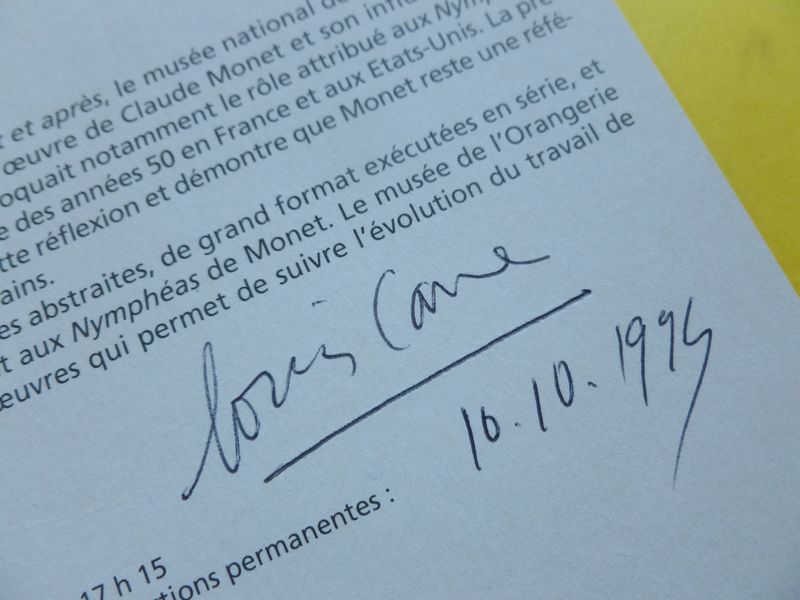 t et après, le musée national de
œuvre de Claude Monet et son infl
oquait notamment le rôle attribué aux Nymp
e des années 50 en France et aux Etats-Unis. La pré-
tte réflexion et démontre que Monet reste une réfé-
ains.
es abstraites, de grand format exécutées en série, et
t aux Nymphéas de Monet. Le musée de l'Orangerie
œuvres qui permet de suivre l'évolution du travail de
Louis Cane
10.10.1994
17 h 15
ctions permanentes :